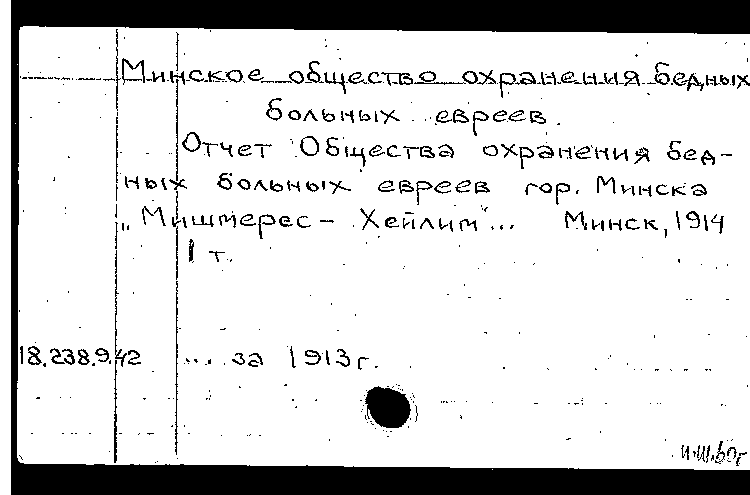 Минское общество охранения бедных
больных евреев.
Отчет Общества охранения бед-
ных больных евреев гор. Минска
„Мишмерес-Хейлим"... Минск, 1914
1 т.
18.238.9.42 ... за 1913г.